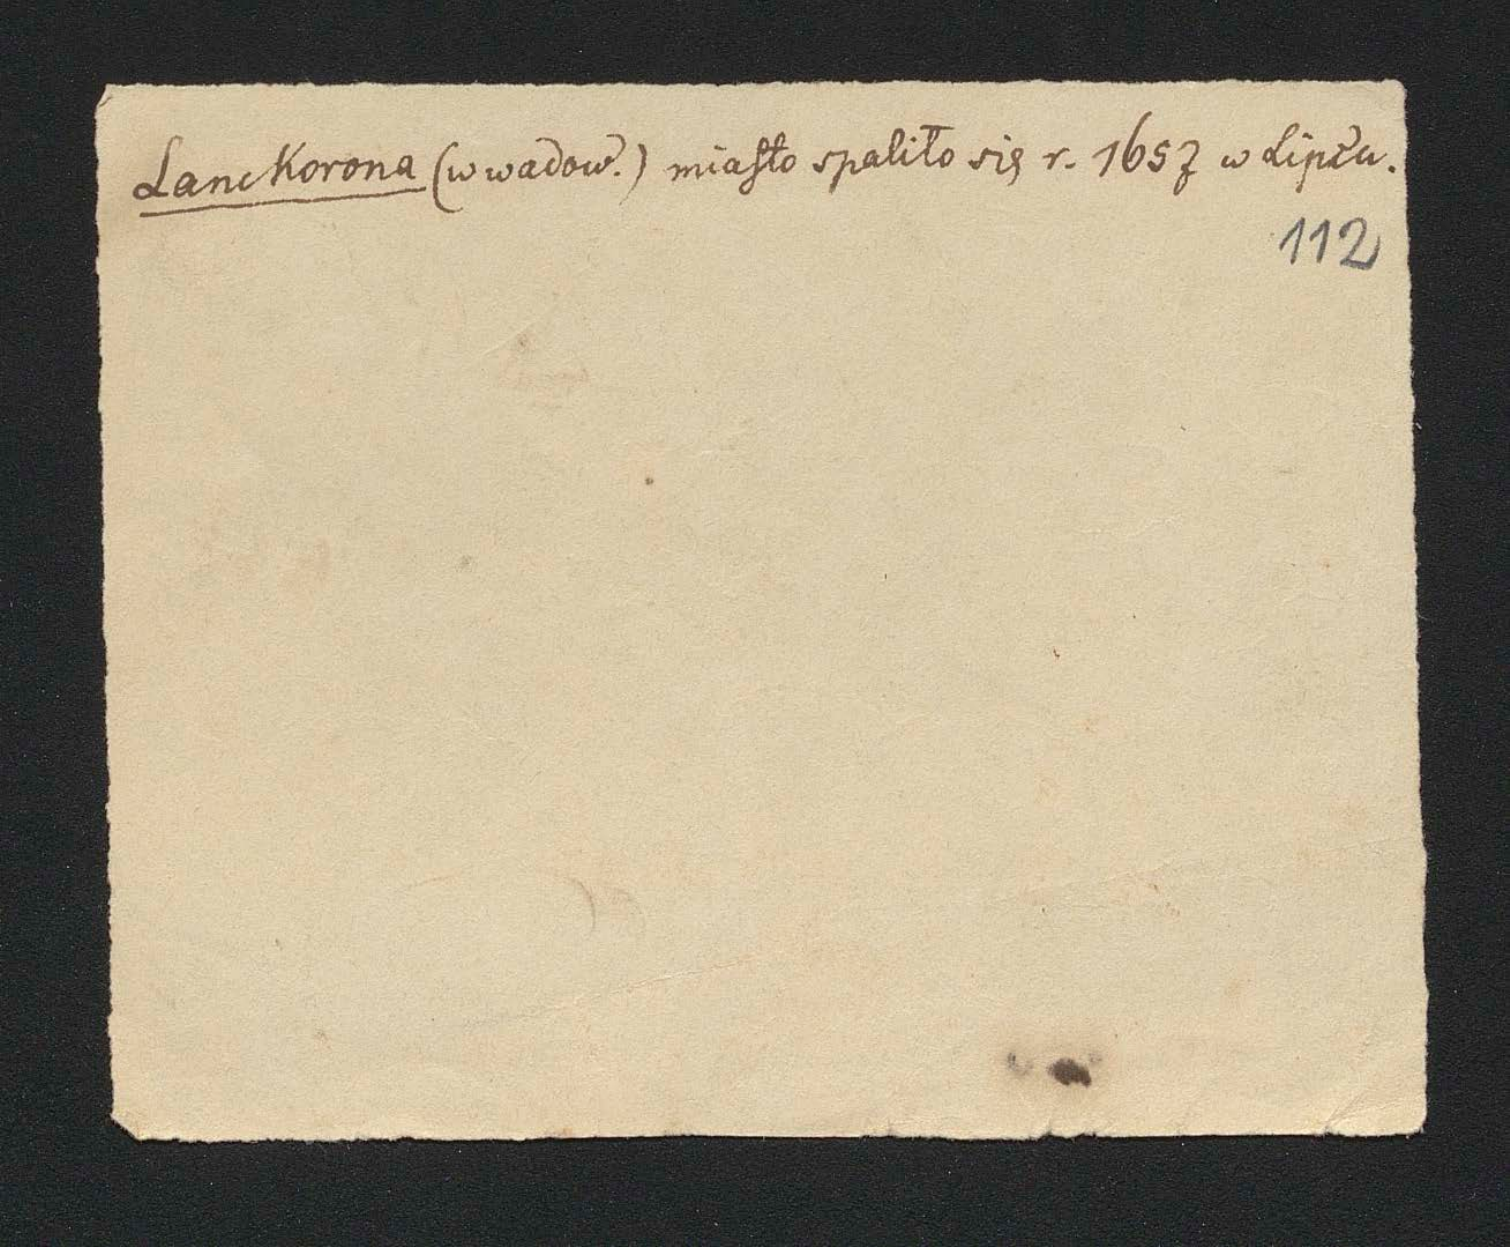 Lanckorona (w wadow.) miasto spaliło się r. 1657 w Lipcu.
112